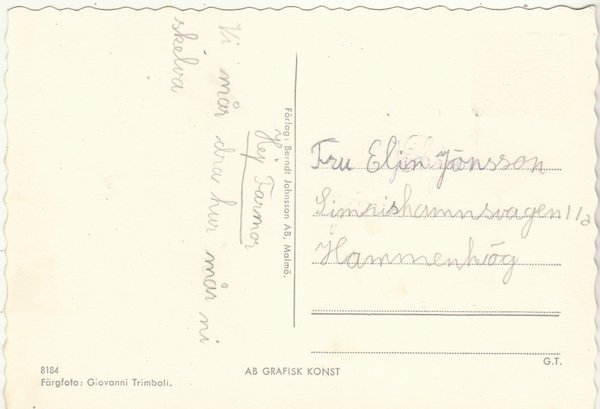 Hej Farmor
Vi mår dra hur mår ni
skelva
Förlag: Berndt Johnsson AB, Malmö.
Fru Elin Jönsson
Simrishamnsvagen 11a
Hammenhög
8184
Färgfoto: Giovanni Trimboli.
AB GRAFISK KONST
G.T.